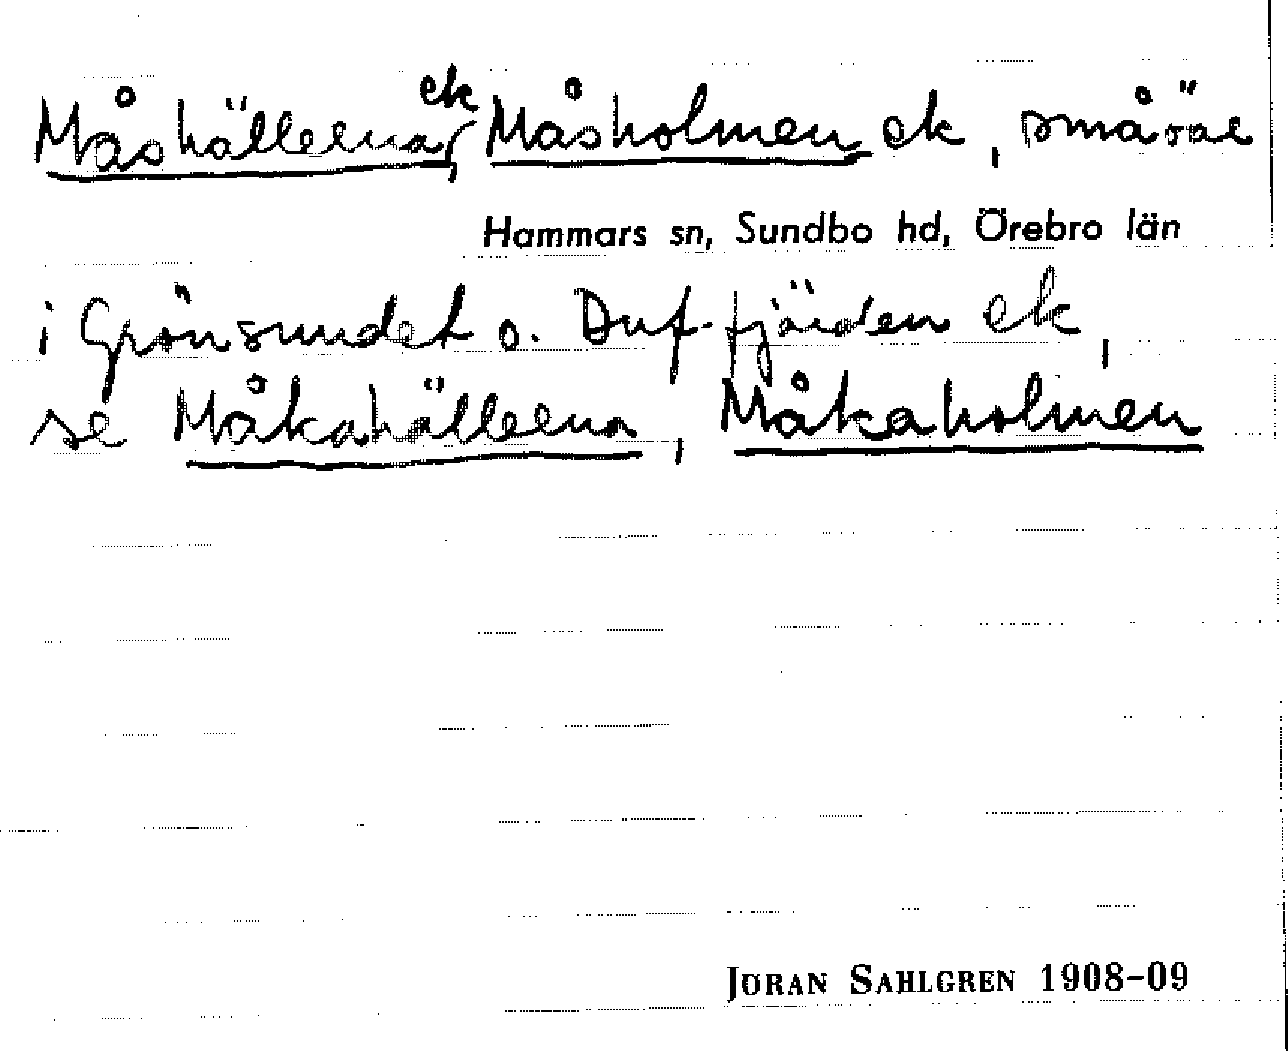 Måshälleena ek, Måsholmen ek, småöar
Hammars sn, Sundbo hd, Örebro län
i Grönsundet o. Duf-fjärden ek,
se Måkahälleena, Måkaholmen
JÖRAN SAHLGREN 1908-09